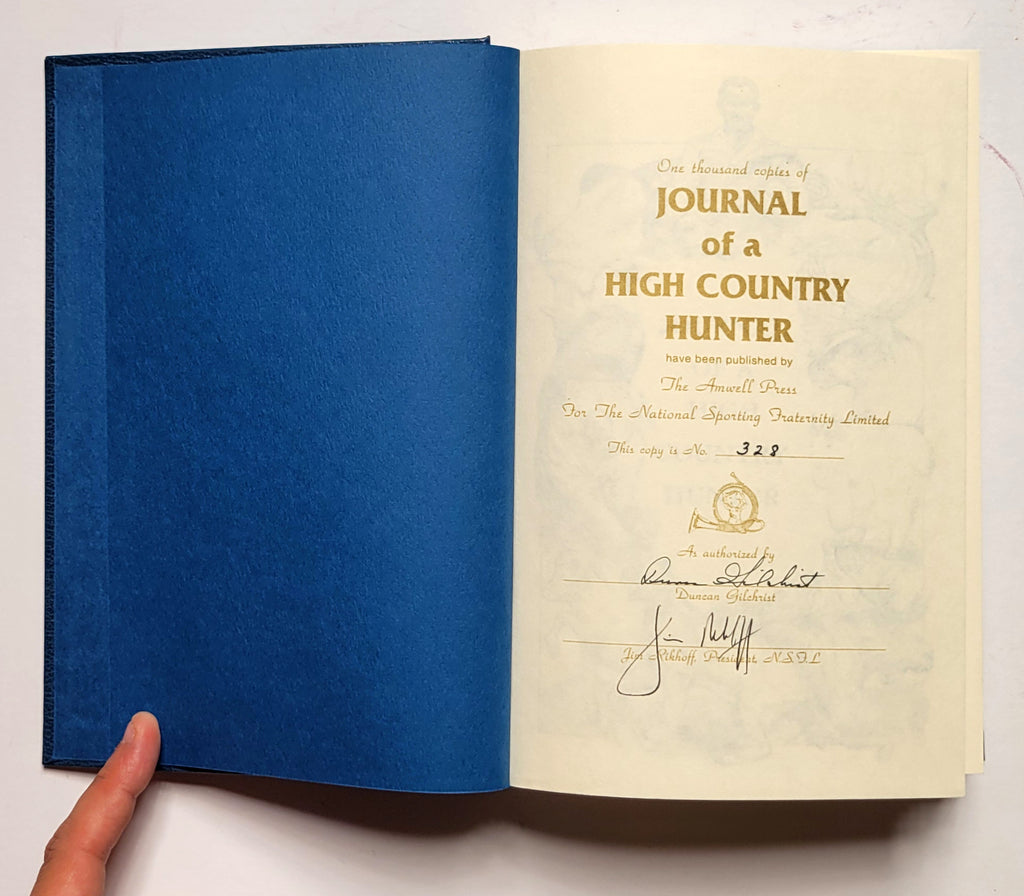 One thousand copies of
JOURNAL
of a
HIGH COUNTRY
HUNTER
have been published by
The Amwell Press
For The National Sporting Fraternity Limited
This copy is No. 328
As authorized by
Duncan Gilchrist
Duncan Gilchrist
Jim Rikhoff
Jim Rikhoff, President, N.S.F.L